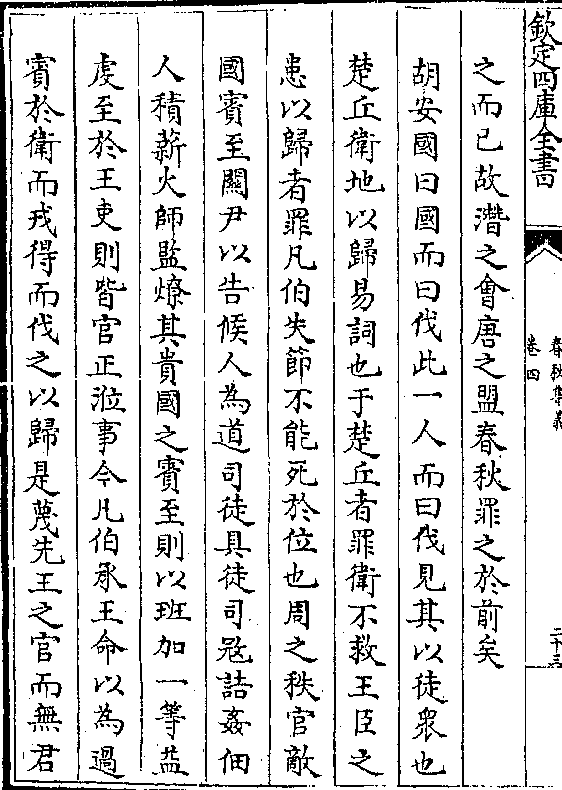 欽定四庫全書
春秋集義
卷四
二十三
之而已故潛之會唐之盟春秋罪之於前矣
胡安國曰國而曰伐此一人而曰伐見其以徒衆也
楚丘衛地以歸易詞也于楚丘者罪衛不救王臣之
患以歸者罪凡伯失節不能死於位也周之秩官敵
國賓至關尹以告候人為道司徒具徒司冦詰姦佃
人積薪火師監燎其貴國之賓至則以班加一等益
虔至於王吏則皆官正涖事今凡伯承王命以為過
賓於衛而戎得而伐之以歸是蔑先王之官而無君